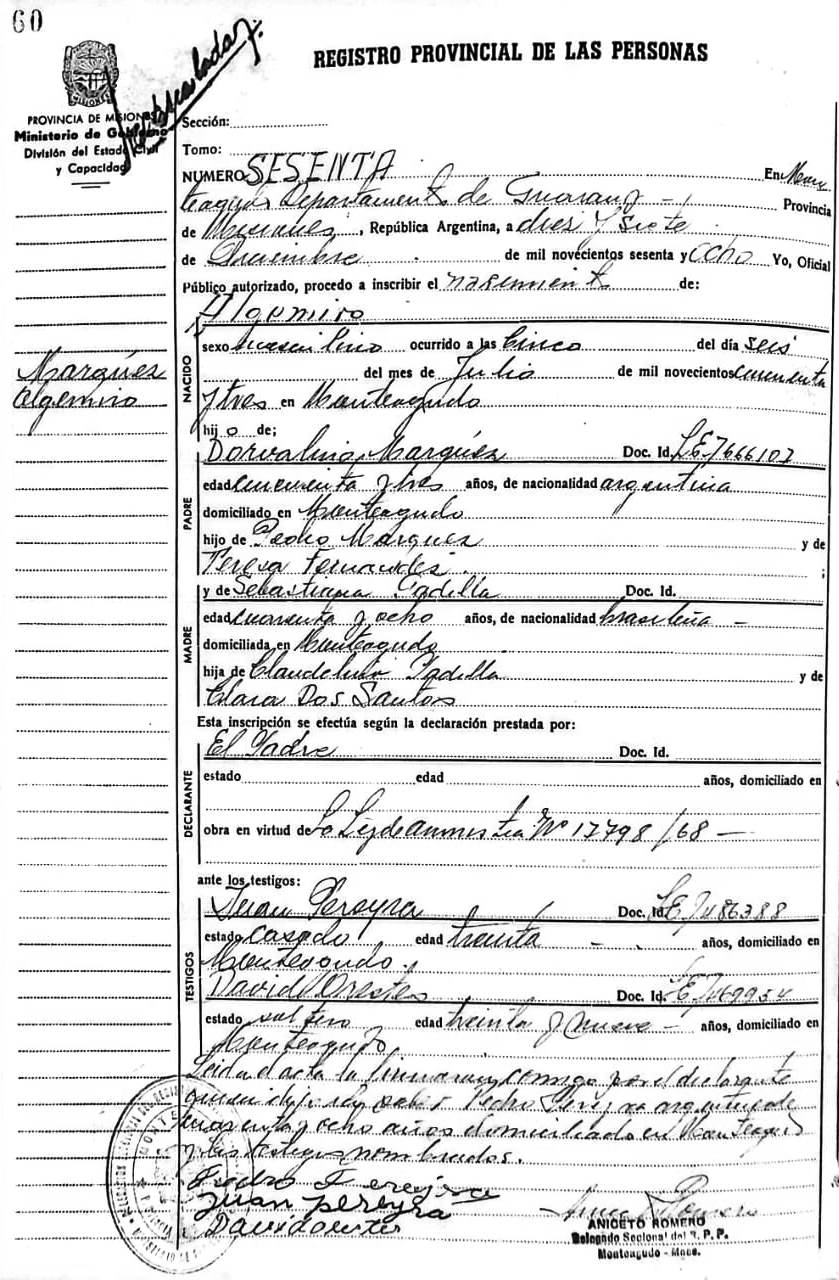 60
REGISTRO PROVINCIAL DE LAS PERSONAS
PROVINCIA DE MISIONES
Ministerio de Gobierno
División del Estado Civil
y Capacidad
Sección:
Tomo:
NUMERO SESENTA En Mon
teagudo Departamento de Guarany - Provincia
de Misiones, República Argentina, a diez y siete
de Diciembre de mil novecientos sesenta y ocho Yo, Oficial
Público autorizado, procedo a inscribir el nacimiento de:
Algemiro
Marquez
Algemiro
NACIDO
sexo masculino ocurrido a las Cinco del día seis
del mes de Julio de mil novecientos cincuenta
y tres en Monteagudo
hijo de;
PADRE
Dorvalino Marquez Doc. Id. LE 7666107
edad cincuenta y tres años, de nacionalidad argentina
domiciliado en Monteagudo
hijo de Pedro Marquez y de
Teresa Fernandes ;
MADRE
y de Sebastiana Padilla Doc. Id.
edad cuarenta y ocho años, de nacionalidad brasileña -
domiciliada en Monteagudo
hija de Claudelino Padilla y de
Clara Dos Santos
Esta inscripción se efectúa según la declaración prestada por:
DECLARANTE
El Padre Doc. Id.
estado edad años, domiciliado en
obra en virtud de La Ley de amnistia Nº 17798/68 -
ante los testigos:
TESTIGOS
Juan Pereyra Doc. Id. LE 7486388
estado casado edad treinta - años, domiciliado en
Monteagudo.
David Orestes Doc. Id. LE 7469954
estado soltero edad treinta y nueve - años, domiciliado en
Monteagudo
Leida el acta la firman conmigo por el declarante
quien dijo no saber Pedro argentino de
cuarenta y ocho años domiciliado en Monteagudo
y los testigos nombrados.
Pedro
Juan Pereyra
David
Romero
ANICETO ROMERO
Delegado Seccional del R. P. P.
Monteagudo - Mnes.